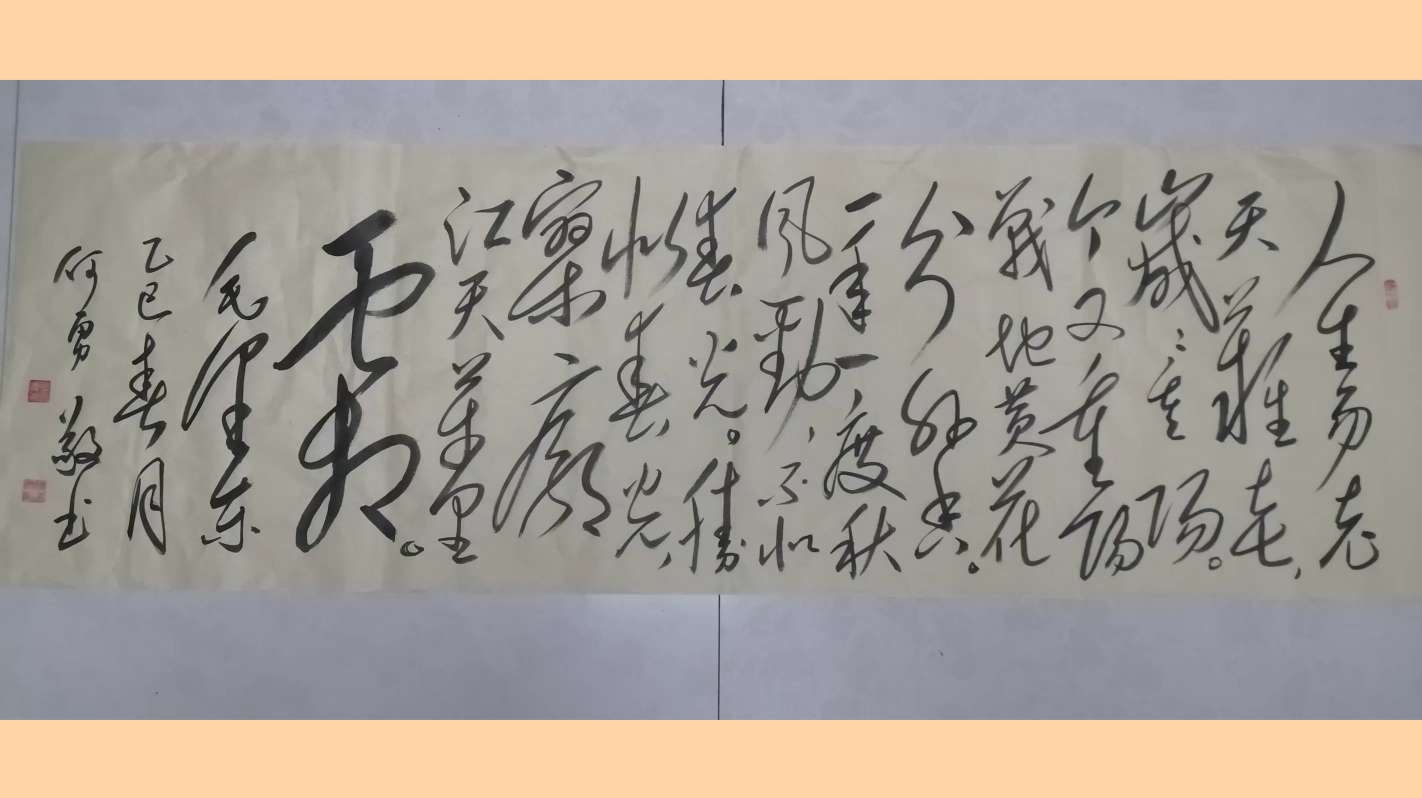 人生易老
天難老，
歲〻重陽。
今又重陽
戰地黄花
分外香。
一年一度秋
風勁，不似
春光。勝
似春光，
寥廓
江天萬里
霜。
毛泽东
乙巳春月
何勇敬书